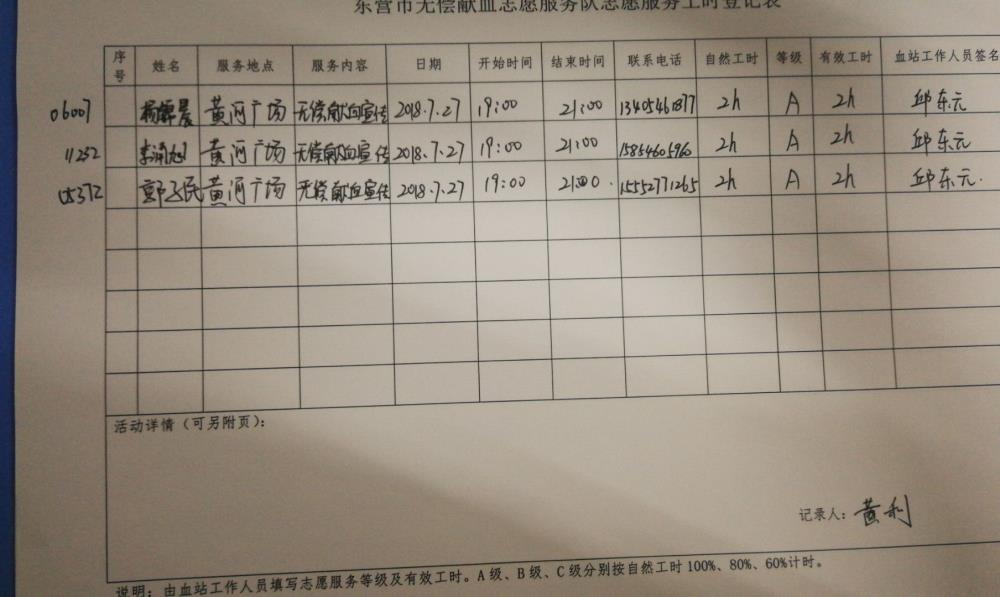 东营市无偿献血志愿服务队志愿服务工时登记表
序号 姓名 服务地点 服务内容 日期 开始时间 结束时间 联系电话 自然工时 等级 有效工时 血站工作人员签名
06007 黄河广场 无偿献血宣传 2018.7.27 19:00 21:00 2h A 2h 邱东元
11252 黄河广场 无偿献血宣传 2018.7.27 19:00 21:00 15854605960 2h A 2h 邱东元
05372 黄河广场 无偿献血宣传 2018.7.27 19:00 21:00. 15552771265 2h A 2h 邱东元.
活动详情（可另附页）：
记录人：黄利
说明：由血站工作人员填写志愿服务等级及有效工时。A级、B级、C级分别按自然工时100%、80%、60%计时。